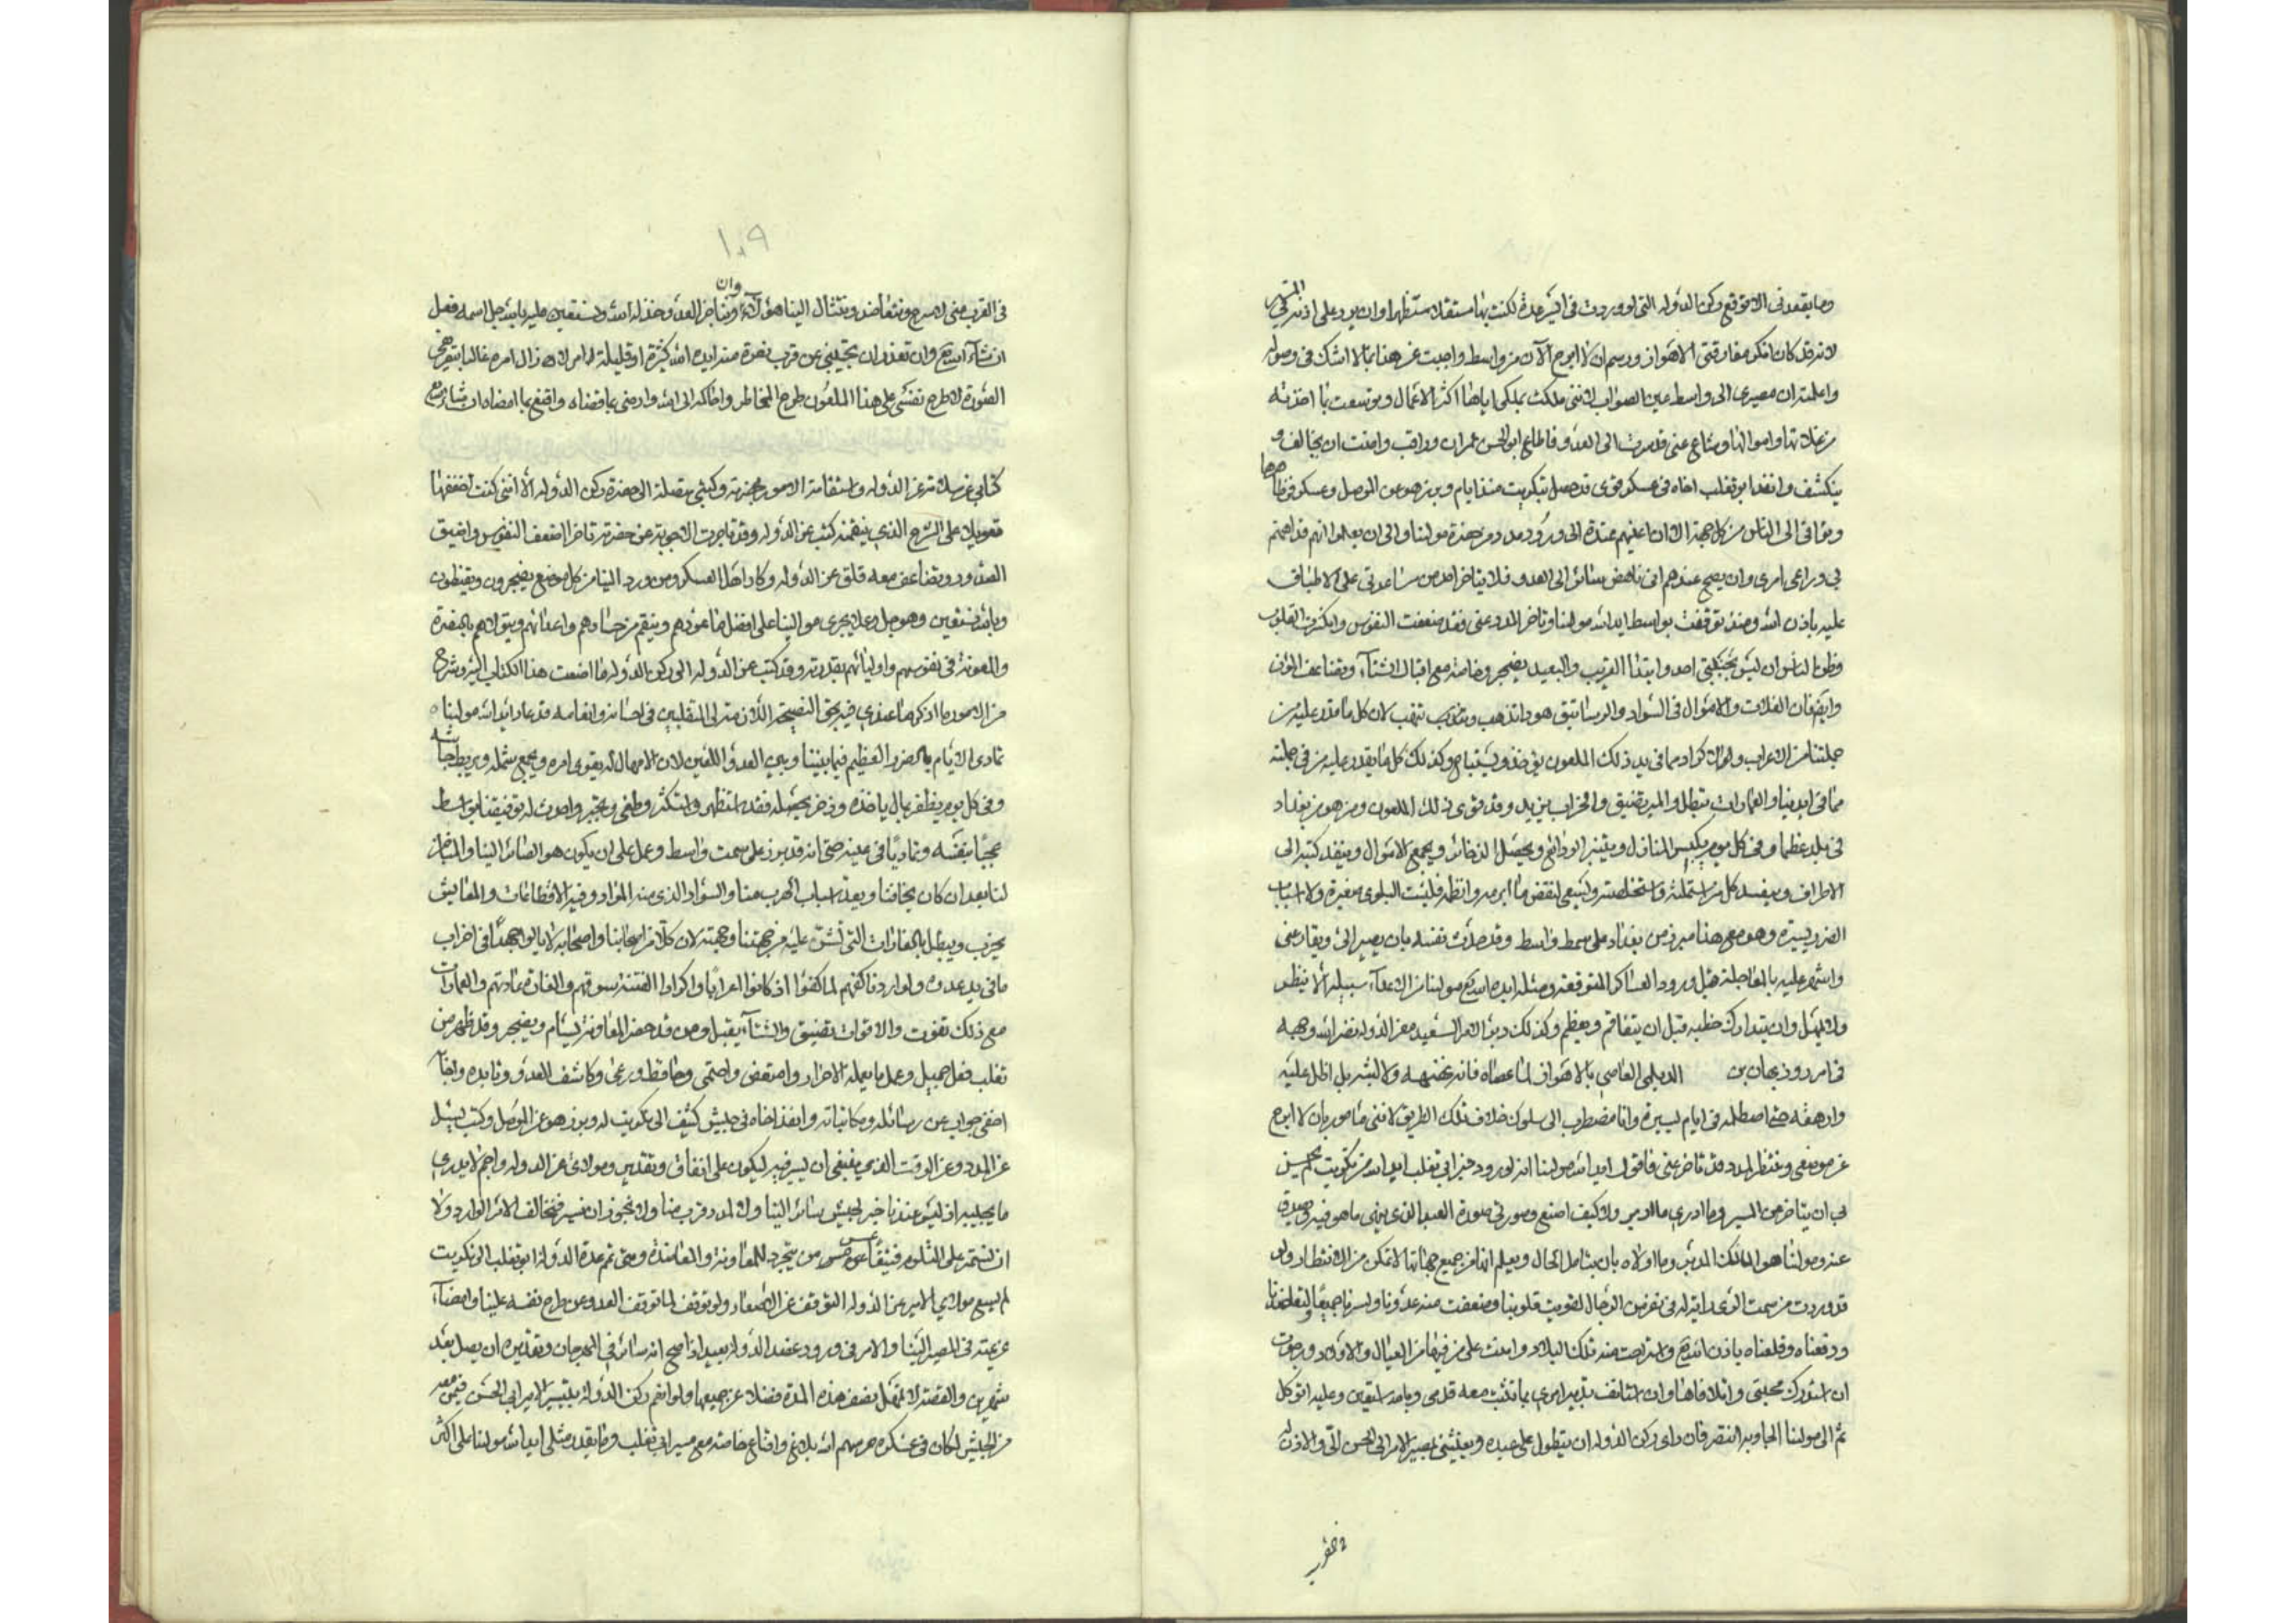 وما يقعدنى الا توقع ركن الدوله التى لو وردت فى ايسر عدة لكنت بها مستقلا مستظهرا وان يرد على اذنه فى المسير
لانه قد كان انكر مفارقتى الاهواز ورسم ان لا ابرح الآن من واسط واجبت عن هذا بما لا اشك فى وصوله
واعلمته ان مصيرى الى واسط عين الصواب لاننى ملكت بملكى اياها اكثر الاعمال وتوسعت بما اخذته
من غلاتها واموالها وشاع عنى قد سرت الى العدو فاطاع ابو الحسن عمران وراقب وامنت ان يخالف و
ينكشف وانفذ ابو تغلب اخاه فى عسكر قوى قد حصل بتكريت منذ ايام وبرز هو عن الموصل وعسكر فى ظاهرها
وتوافى الى الناس من كل جهة الا ان اعينهم ممتدة الى ورود مدد من حضرة مولينا والى ان يعلموا انهم قد اهمهم
بى وراعى امرى وان يصح عندهم انى ناهض سائر الى العدو فلا يتاخر احد من ساعدتى على الاطباق
عليه باذن الله ومنذ توقفت بواسط ايد الله مولينا وتاخر المدد عنى فقد ضعفت النفوس وانكسرت القلوب
وظن الناس ان ليس بجنبتى احد وابتدا القريب والبعيد يضجر وخاصة مع اقبال الشتآء وتضاعف المؤن
وايضا فان الغلات والاموال فى السواد والرساتيق هوذا تذهب وتنهب لان كل ما قدر عليه من
جملتنا من الاعراب والاكراد مما فى يد ذلك الملعون يؤخذ ويستباح وكذلك كل ما يقدر عليه من فى جملته
مما فى ايدينا والعمارات تبطل والمير تضيق والخراب يزيد وقد قوى ذلك الملعون ومن هو من بغداد
فى بلد عظما وفى كل يوم يكبس المنازل ويثير الودائع ويحصل الذخائر ويجمع الاموال وينفذ كتبه الى
الاطراف ويفسد كل من استملته واستخلصته ويسعى لنقض ما ابرمه وانظمه فليست البلوى صغيرة ولا اسباب
الضرر يسيرة وهو مع هذا مبرز من بغداد على سمط واسط وقد حدث نفسه بان يصير الىّ ويقارعنى
واشهر عليه بالمعاجلة قبل ورود العساكر المتوقعة ومثله ايده الله تع مولينا من الاعدآء سبيله الا ينظر
ولا يمهل وان يتدارك خطبه قبل ان يتفاقم ويعظم وكذلك دبر الامر السعيد معز الدوله نضر الله وجهه
فى امر روزبهان بن الديلمى العاصى بالاهواز لما عصاه فانه نهض اليه ولا لبث بل اظل عليه
وارهقه حتى اصطلمه فى ايام يسيرة وانا مضطرب الى سلوك خلاف تلك الطريق لاننى مامور بان لا ابرح
عن موضعى ومنتظر لمدد قد تاخر عنى فاقول ايد الله مولينا انه لو ورد خبر ابى تغلب ايد الله من تكريت لم يحسن
بى ان يتاخر عن المسير وما ادرى ما الامير ولا كيف اصنع وصورتى صورة العبد الذى ينهى ما هو فيه ويصدق
عنه ومولينا هو المالك المدبر وما اولاه بان يتامل الحال ويعلم انها من جميع جهاتها لا تمكن من الانتظار ولو
قد وردت من سمت الرى رايته له فى نفر من الرجال لقويت قلوبنا وضعفت منه عدونا ولسرنا جميعا
ودفعناه وقلعناه باذن الله تع واسترحت منه تلك البلاد وامنت على من فيها من العيال والاولاد ورجوت
ان استدرك محبتى واتلافاها وان استانف تدبير امرى بما تثبت معه قدمى وبالله استعين وعليه اتوكل
ثم الى مولينا الجأ وبه انتصر فان راى ركن الدوله ان يتطول على عبده ويغيثنى بمسير الامير ابى الحسن الىّ والاذن له
فى القرب
١٠٩
وان
فى القرب منى لاسرع ونتعاضد وتنثال الينا هؤلاء ونناجز العدو خذله الله ونستعين عليه بالله جل اسمه فعل
ان شاء الله تع وان تعذر ان يجيبنى عن قرب نصرة منه ايده الله كثيرة او قليلة
الصورة لاطرح نفسى على هذا الملعون طرح المخاطر واحاكمه الى الله وارضى بما قضاه واقنع بما امضاه ان شاء الله تع
كتابى عن سلامة عز الدوله واستقامة الامور بحضرته وكتبى متصلة الى حضرة ركن الدوله الا اننى كنت اخففها
تعويلا على الشرح الذى يتضمنه كتب عز الدوله وقد تاخرت الاجوبة عن حضرته تاخرا اضعف النفوس واضيق
الصدور وتضاعف معه قلق عز الدوله وكاد اهل العسكر ومن ورد الينا من كل موضع يضجرون ويقنطون
وبالله نستعين وهو جل وعلا يجرى موالينا على افضل ما عودهم وينتقم من حسادهم واعدائهم ويتولاهم بالنصرة
والمعونة فى نفوسهم واوليائهم بقدرته وقد كتب عز الدوله الى ركن الدوله ما اضعت هذا الكتاب اليه وشرح
من الامور ما اذكر ما عندى فيه بحق النصيحة اللازمة لى للمتقلبين فى احسانه وانعامه قد عاد ايد الله مولينا
تمادى الايام بالضرر العظيم فيما بيننا وبين العدو اللعين لان الامهال له يقوى امره ويجمع شمله ويربط جاشه
وفى كل يوم يظفر بمال ياخذه وذخر يحصله فقد استظهر واستكثر وطغى وتجبر واحدث له توقفنا بواسط
عجبا بنفسه وتماديا فى غيه حتى انه قد برز على سمت واسط وعمل على ان يكون هو الصائر الينا والمناجز
لنا بعد ان كان يخافنا ويعد اسباب الهرب منا والسواد الذى منه المواد وفيه الاقطاعات والمعايش
يخرب ويبطل بالغارات التى تشن عليه من جهتنا وجهته لان كلا من اصحابنا واصحابه لا يالوا جهدا فى اخراب
ما فى يد عدوه ولو اردنا كفهم لما كفوا اذ كانوا اعرابا واكرادا الفتنة سوقهم والغارة عادتهم والعمارات
مع ذلك تفوت والاقوات تضيق والشتآء يقبل ومن قد حضر للمعاونة يسام ويضجر وقد ظهر من
تغلب فعل جميل وعمل ما يعمله الاحرار وامتعض واحتمى وحافظ ورعى وكاشف العدو ونابذه
اخفى جوابه عن رسائله ومكاتباته وانفذ اخاه فى جيش كثيف الى تكريت له وبرز هو عن الموصل وكتب يسئل
عن المدد وعن الوقت الذى ينبغى ان يسير فيه ليكون على اتفاق وتقدير ومولاى عز الدوله واجم لا يدرى
ما يجيبه اذ ليس عندنا خبر لجيش سائر الينا ولا لمدد قرب منا ولا نجوز ان نسير فنخالف الامر الوارد ولا
ان نستمر على التلوم فيتقاعس من يتجرد للمعاونة والمعاضدة ومتى تم عدة الدولة ابو تغلب الى تكريت
لم يسع مولاى الامير عز الدوله التوقف عن الاصعاد ولو توقف لما توقف العدو عن طرح نفسه علينا وامضآء
عزيمته فى المصير الينا والامر فى ورود عضد الدوله بعيد اذا صح انه سائر فى المهرجان وتقديره ان يصل بعد
شهرين والقصة لا تمهل نصف هذه المدة فضلا عن جميعها ولو انعم ركن الدولة بتسيير الامير ابى الحسن فيمن معه
من الجيش لكان فى عسكره حرسهم الله بلاغ واقناع خاصة مع مسير ابى تغلب وما يقدر مثلى ايد الله مولينا على اكثر